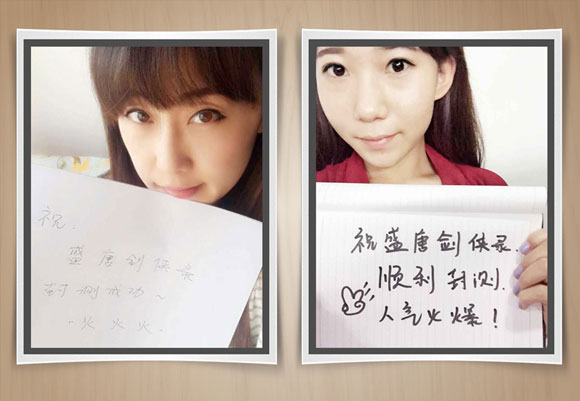 祝,
盛唐剑侠录
封测成功~
火火火.
祝盛唐剑侠录.
顺利封测.
人气火爆!